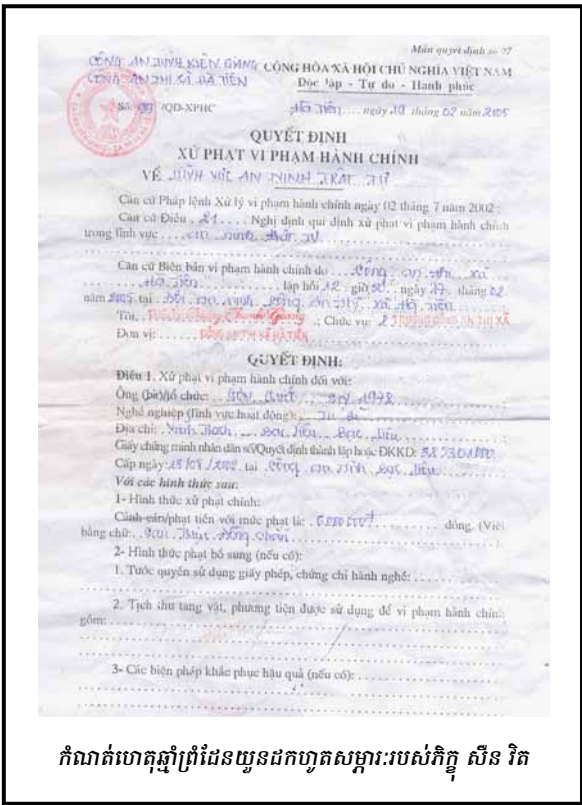 Mẫu quyết định số 07
CÔNG AN TỈNH KIÊN GIANG CỘNG HÒA XÃ HỘI CHỦ NGHĨA VIỆT NAM
CÔNG AN THỊ XÃ HÀ TIÊN Độc lập - Tự do - Hạnh phúc
Số: 09 /QD-XPHC Hà Tiên, ngày 19 tháng 02 năm 2005
QUYẾT ĐỊNH
XỬ PHẠT VI PHẠM HÀNH CHÍNH
VỀ LĨNH VỰC AN NINH TRẬT TỰ
Căn cứ Pháp lệnh Xử lý vi phạm hành chính ngày 02 tháng 7 năm 2002 ;
Căn cứ Điều . 21 . . . . Nghị định qui định xử phạt vi phạm hành chính
trong lĩnh vực . . . . an ninh trật tự
Căn cứ Biên bản vi phạm hành chính do . . . Công an thị xã
Hà Tiên . . . lập hồi 12 giờ 50 ngày 17 tháng 02
năm 2005 tại . đội an ninh công an thị xã Hà Tiên
Tôi, Giang ; Chức vụ: TRƯỞNG CÔNG AN THỊ XÃ
Đơn vị: CÔNG AN THỊ XÃ HÀ TIÊN
QUYẾT ĐỊNH:
Điều 1. Xử phạt vi phạm hành chính đối với:
Ông (bà)/tổ chức: SN 1978
Nghề nghiệp (lĩnh vực hoạt động): . . . Tu sĩ
Địa chỉ: Bạc Liêu
Giấy chứng minh nhân dân số/Quyết định thành lập hoặc ĐKKD:
Cấp ngày: tại công an tỉnh Bạc Liêu
Với các hình thức sau:
1- Hình thức xử phạt chính:
Cảnh cáo/phạt tiền với mức phạt là: đồng. (Viết
bằng chữ:
2- Hình thức phạt bổ sung (nếu có):
1. Tước quyền sử dụng giấy phép, chứng chỉ hành nghề:
2. Tịch thu tang vật, phương tiện được sử dụng để vi phạm hành chính
gồm:
3- Các biện pháp khắc phục hậu quả (nếu có):
កំណត់ហេតុឆ្មាំព្រំដែនយួនដកហូតសម្ភារៈរបស់ភិក្ខុ សឺន វិត